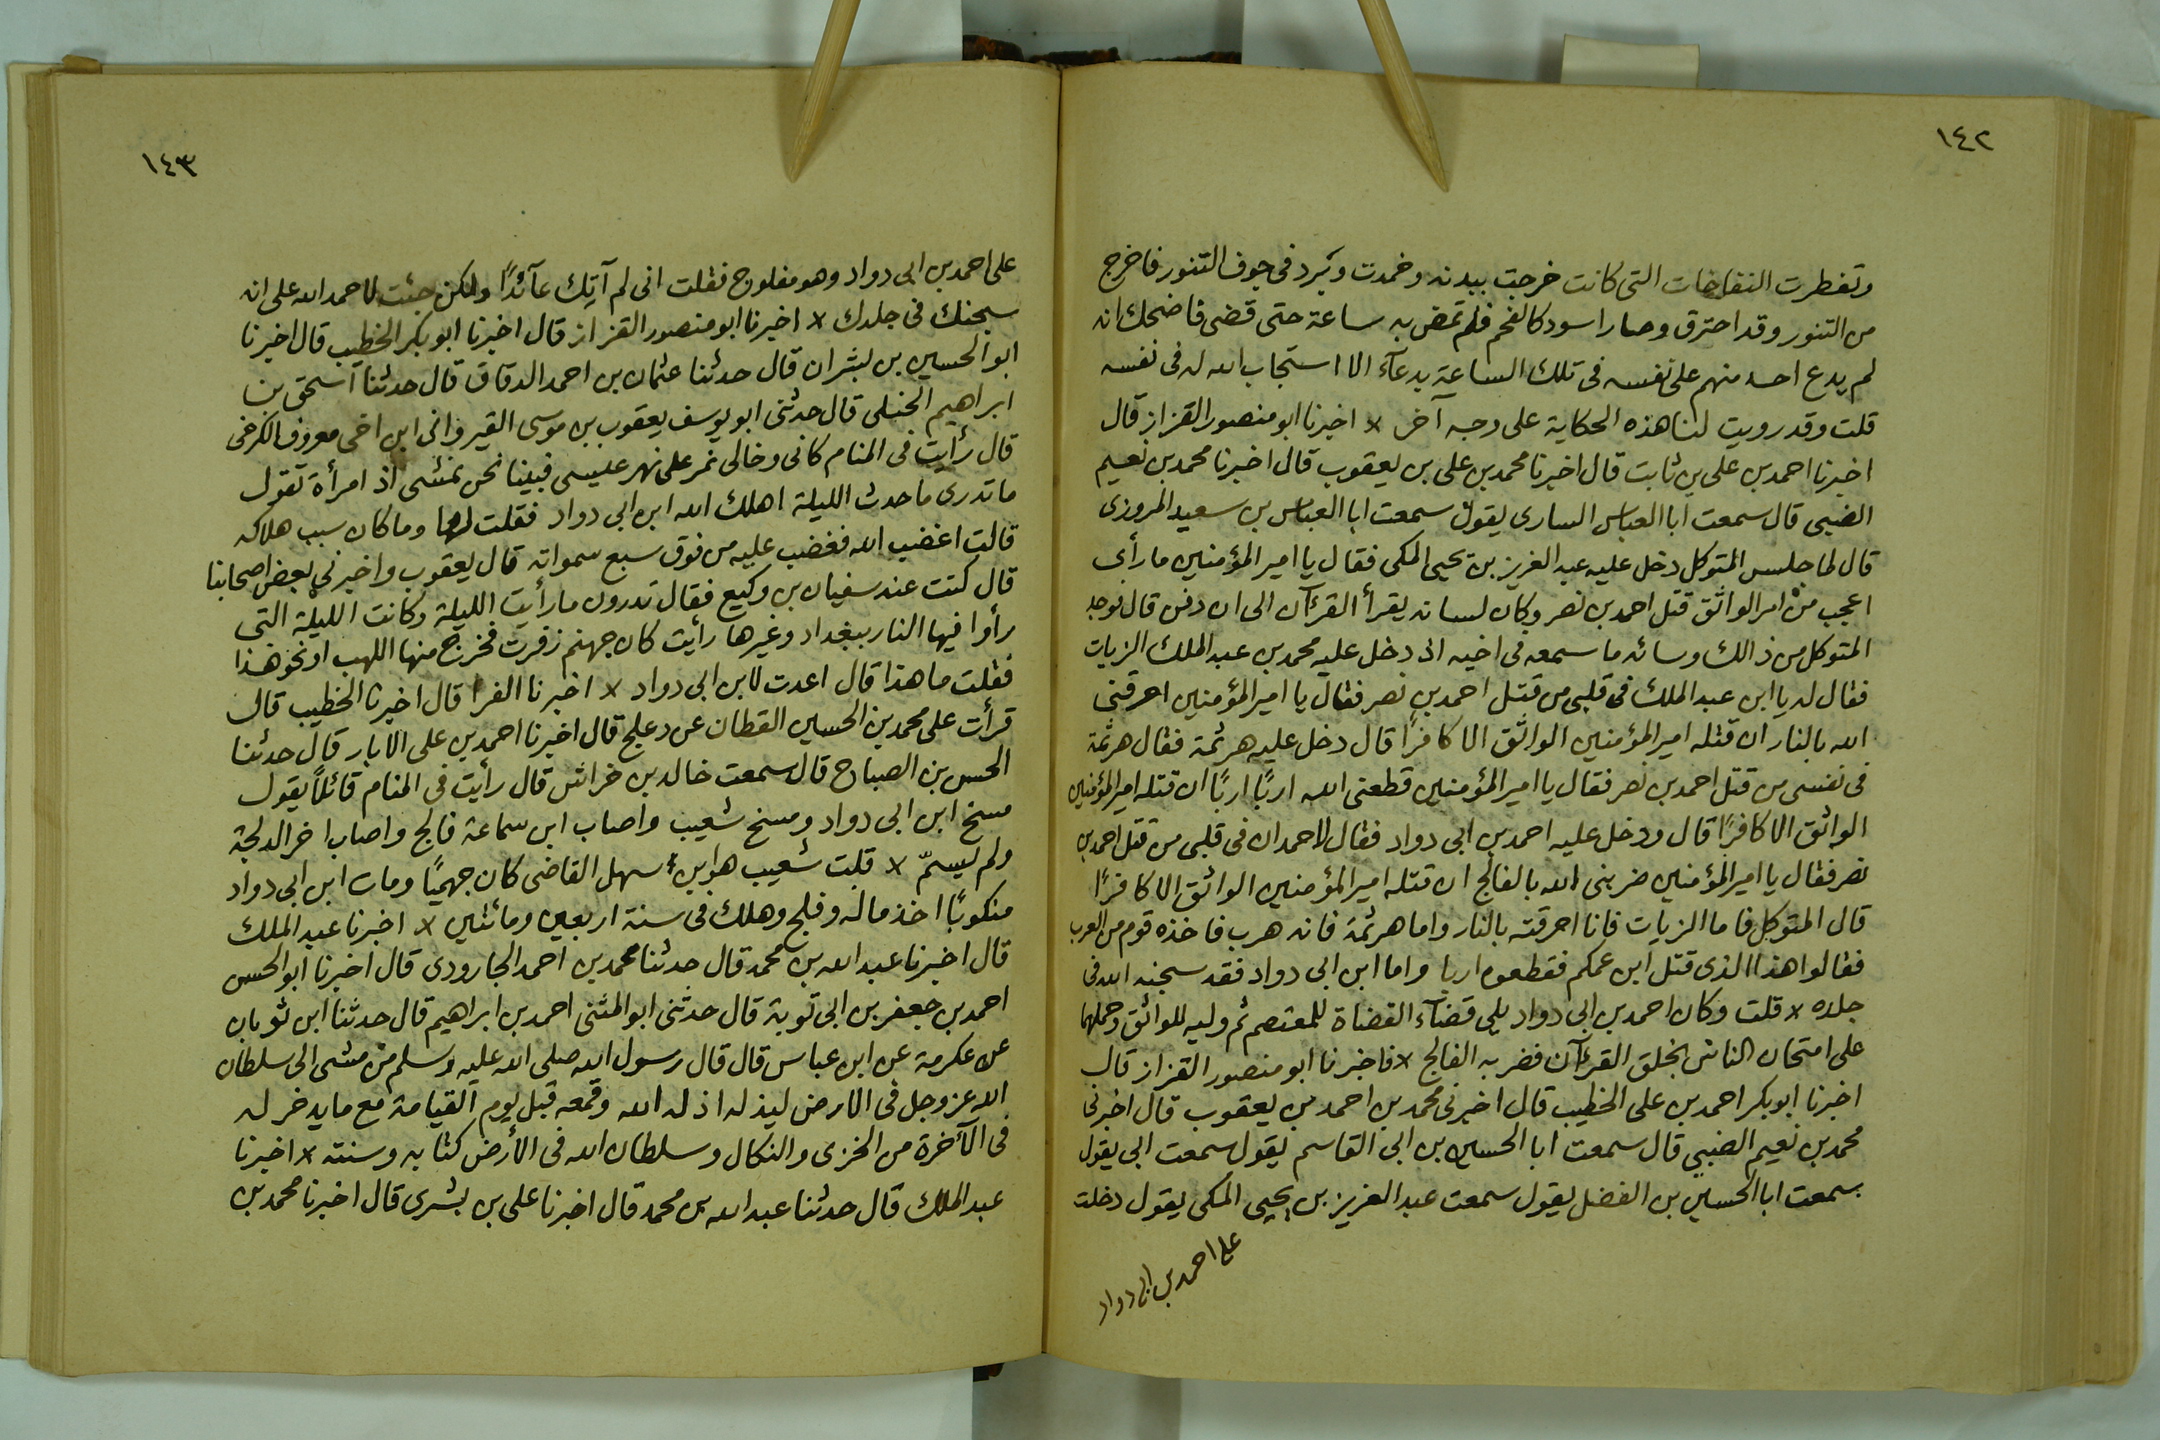 ١٤٢
وتفطرت النفاخات التى كانت خرجت ببدنه وخمدت وبرد فى جوف التنور فاخرج
من التنور وقد احترق وصار اسود كالفحم فلم تمض به ساعة حتى قضى فاضحك انه
لم يدع احد منهم على نفسه فى تلك الساعة بدعآء الا استجاب الله له فى نفسه
قلت وقد رويت لنا هذه الحكاية على وجه آخر × اخبرنا ابو منصور القزاز قال
اخبرنا احمد بن على بن ثابت قال اخبرنا محمد بن على بن يعقوب قال اخبرنا محمد بن نعيم
الضبى قال سمعت ابا العباس السارى يقول سمعت ابا العباس بن سعيد المروزى
قال لما جلس المتوكل دخل عليه عبد العزيز بن يحيى المكى فقال يا امير المؤمنين ما رأى
اعجب من امر الواثق قتل احمد بن نصر وكان لسانه يقرأ القرءآن الى ان دفن قال فوجد
المتوكل من ذالك وسائه ما سمعه فى اخيه اذ دخل عليه محمد بن عبد الملك الزيات
فقال له يا ابن عبد الملك فى قلبى من قتل احمد بن نصر فقال يا امير المؤمنين احرقنى
الله بالنار ان قتله امير المؤمنين الواثق الا كافرًا قال دخل عليه هرثمة فقال هرثمة
فى نفسى من قتل احمد بن نصر فقال يا امير المؤمنين قطعنى الله اربًا اربًا ان قتله امير المؤمنين
الواثق الا كافرًا قال ودخل عليه احمد بن ابى دواد فقال لاحمد ان فى قلبى من قتل احمد بن
نصر فقال يا امير المؤمنين ضربنى الله بالفالج ان قتله امير المؤمنين الواثق الا كافرًا
قال المتوكل فاما الزيات فانا احرقته بالنار واما هرثمة فانه هرب فاخذه قوم من العرب
فقالوا هذا الذى قتل ابن عمكم فقطعوه اربا واما ابن ابى دواد فقد سجنه الله فى
جلده × قلت وكان احمد بن ابى دواد يلى قضآء القضاة للمعتصم ثم وليه للواثق وحملها
على امتحان الناس بخلق القرءآن فضربه الفالج × فاخبرنا ابو منصور القزاز قال
اخبرنا ابو بكر احمد بن على الخطيب قال اخبرنى محمد بن احمد بن يعقوب قال اخبرنى
محمد بن نعيم الضبى قال سمعت ابا الحسين بن ابى القاسم يقول سمعت ابى يقول
سمعت ابا الحسين بن الفضل يقول سمعت عبد العزيز بن يحيى المكى يقول دخلت
على احمد بن ابى دواد
١٤٣
على احمد بن ابى دواد وهو مفلوج فقلت انى لم آتك عآئدًا ولكن جئت لاحمد الله على انه
سجنك فى جلدك × اخبرنا ابو منصور القزاز قال اخبرنا ابو بكر الخطيب قال اخبرنا
ابو الحسين بن بشران قال حدثنا عثمان بن احمد الدقاق قال حدثنا اسحق بن
ابراهيم الختلى قال حدثنى ابو يوسف يعقوب بن موسى القيروانى ابن اخى معروف الكرخى
قال رأيت فى المنام كانى وخالى نمر على نهر عيسى فبينا نحن نمشى اذ امرأة تقول
ما تدرى ما حدث الليلة اهلك الله ابن ابى دواد فقلت لها وما كان سبب هلاكه
قالت اغضب الله فغضب عليه من فوق سبع سمواته قال يعقوب واخبرنى بعض اصحابنا
قال كنت عند سفيان بن وكيع فقال تدرون ما رأيت الليلة وكانت الليلة التى
رأوا فيها النار ببغداد وغيرها رأيت كان جهنم زفرت فخرج منها اللهب او نحو هذا
فقلت ما هذا قال اعدت لابن ابى دواد × اخبرنا الفرا قال اخبرنا الخطيب قال
قرأت على محمد بن الحسين القطان عن دعلج قال اخبرنا احمد بن على الابار قال حدثنا
الحسن بن الصباح قال سمعت خالد بن خراش قال رأيت فى المنام قائلًا يقول
مسخ ابن ابى دواد ومسخ شعيب واصاب ابن سماعة فالج واصاب اخر الدبحة
ولم يسمّ × قلت شعيب هو ابن سهل القاضى كان جهميًا ومات ابن ابى دواد
منكوبًا اخذ ماله وفلج وهلك فى سنة اربعين ومائتين × اخبرنا عبد الملك
قال اخبرنا عبد الله بن محمد قال حدثنا محمد بن احمد الجارودى قال اخبرنا ابو الحسن
احمد بن جعفر بن ابى توبة قال حدثنى ابو المثنى احمد بن ابراهيم قال حدثنا ابن ثوبان
عن عكرمة عن ابن عباس قال قال رسول الله صلى الله عليه وسلم من مشى الى سلطان
الله عز وجل فى الارض ليذله اذله الله وقمعه قبل يوم القيامة مع ما يدخر له
فى الآخرة من الخزى والنكال وسلطان الله فى الأرض كتابه وسنته × اخبرنا
عبد الملك قال حدثنا عبد الله بن محمد قال اخبرنا على بن بشرى قال اخبرنا محمد بن